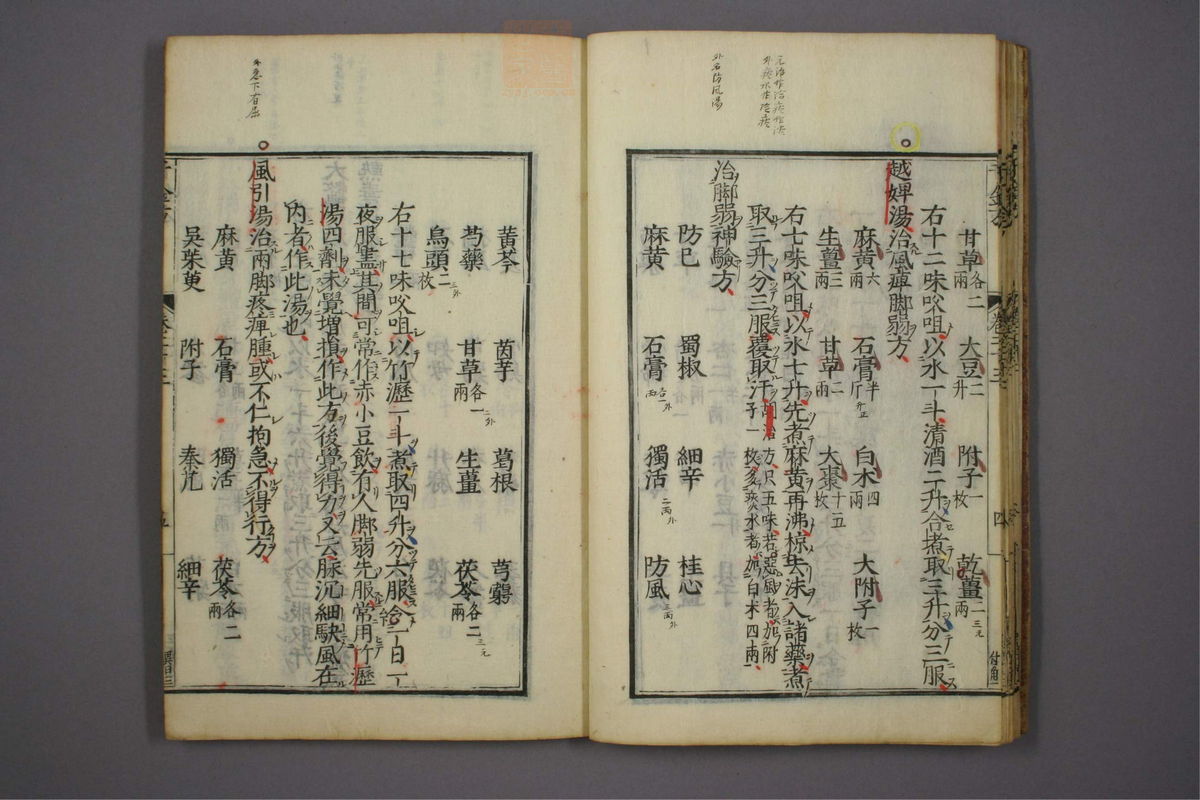 甘草各二兩 大豆二升 附子一枚 乾薑二兩
右十二味㕮咀以水一斗清酒二升合煮取三升分三服
越婢湯治風痺脚弱方
麻黄六兩 石膏半斤 白朮四兩 大附子一枚
生薑三兩 甘草二兩 大棗十五枚
右七味㕮咀以水七升先煮麻黄再沸掠去沫入諸藥煮
取三升分三服覆取汗胡洽方只五味若惡風者加附子一枚多痰水者加白朮四兩
治脚弱神驗方
防已 蜀椒 細辛 桂心
麻黄 石膏 獨活 防風
黄芩 茵芋 葛根 芎藭
芍藥 甘草各一兩 生薑 茯苓各二兩
烏頭二枚
右十七味㕮咀以竹瀝一斗煮取四升分六服令一日一
夜服盡其間可常作赤小豆飲有人脚弱先服常用竹瀝
湯四劑未覺増損作此方後覺得力又云脉沉細駃風在
内者作此湯也
風引湯治兩脚疼痺腫或不仁拘急不得行方
麻黄 石膏 獨活 茯苓各二兩
吳茱萸 附子 秦艽 細辛
四
五